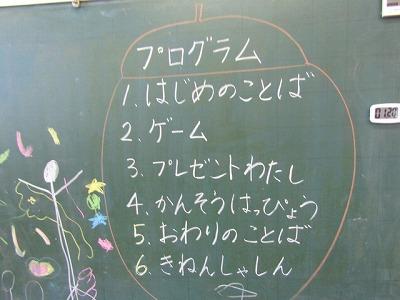 プログラム
1. はじめのことば
2. ゲーム
3. プレゼントわたし
4. かんそうはっぴょう
5. おわりのことば
6. きねんしゃしん